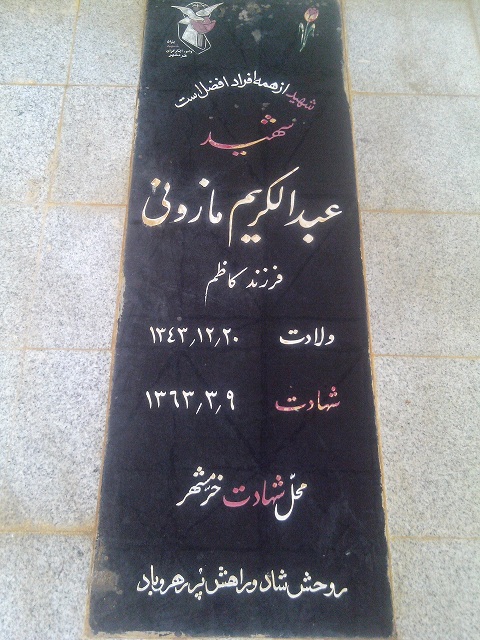 شهید از همه افراد افضل است
شهید
عبدالکریم مازونی
فرزند کاظم
ولادت ۱۳٤۳٫۱۲٫۲۰
شهادت ۱۳٦۳٫۳٫۹
محل شهادت خرمشهر
روحش شاد و راهش پر رهرو باد